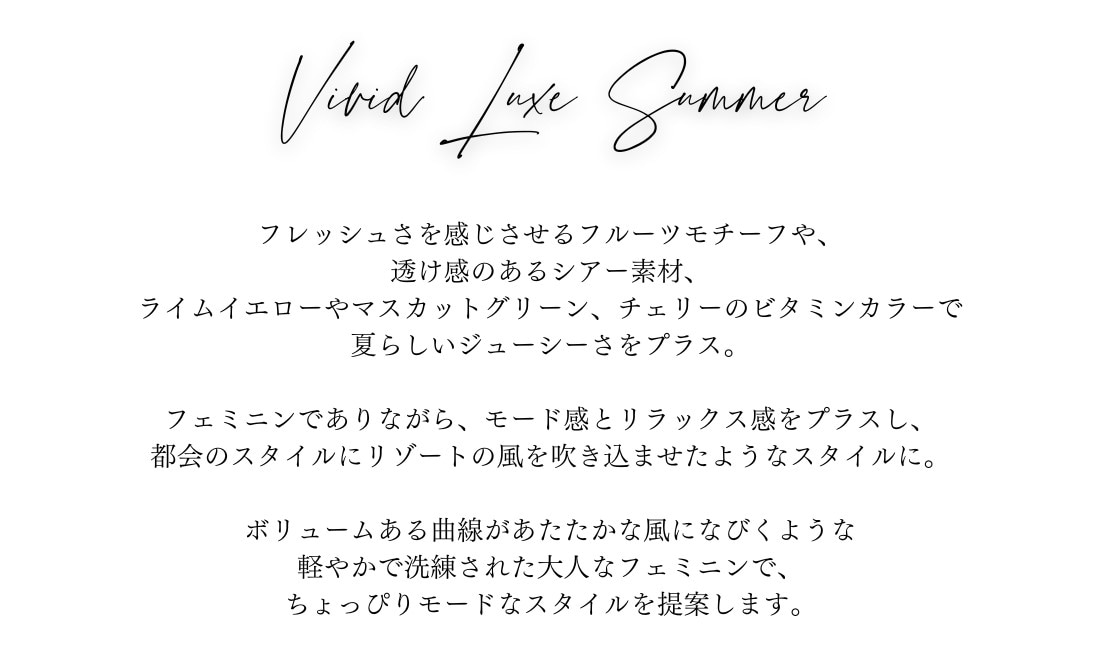 Vivid Luxe Summer
フレッシュさを感じさせるフルーツモチーフや、
透け感のあるシアー素材、
ライムイエローやマスカットグリーン、チェリーのビタミンカラーで
夏らしいジューシーさをプラス。
フェミニンでありながら、モード感とリラックス感をプラスし、
都会のスタイルにリゾートの風を吹き込ませたようなスタイルに。
ボリュームある曲線があたたかな風になびくような
軽やかで洗練された大人なフェミニンで、
ちょっぴりモードなスタイルを提案します。